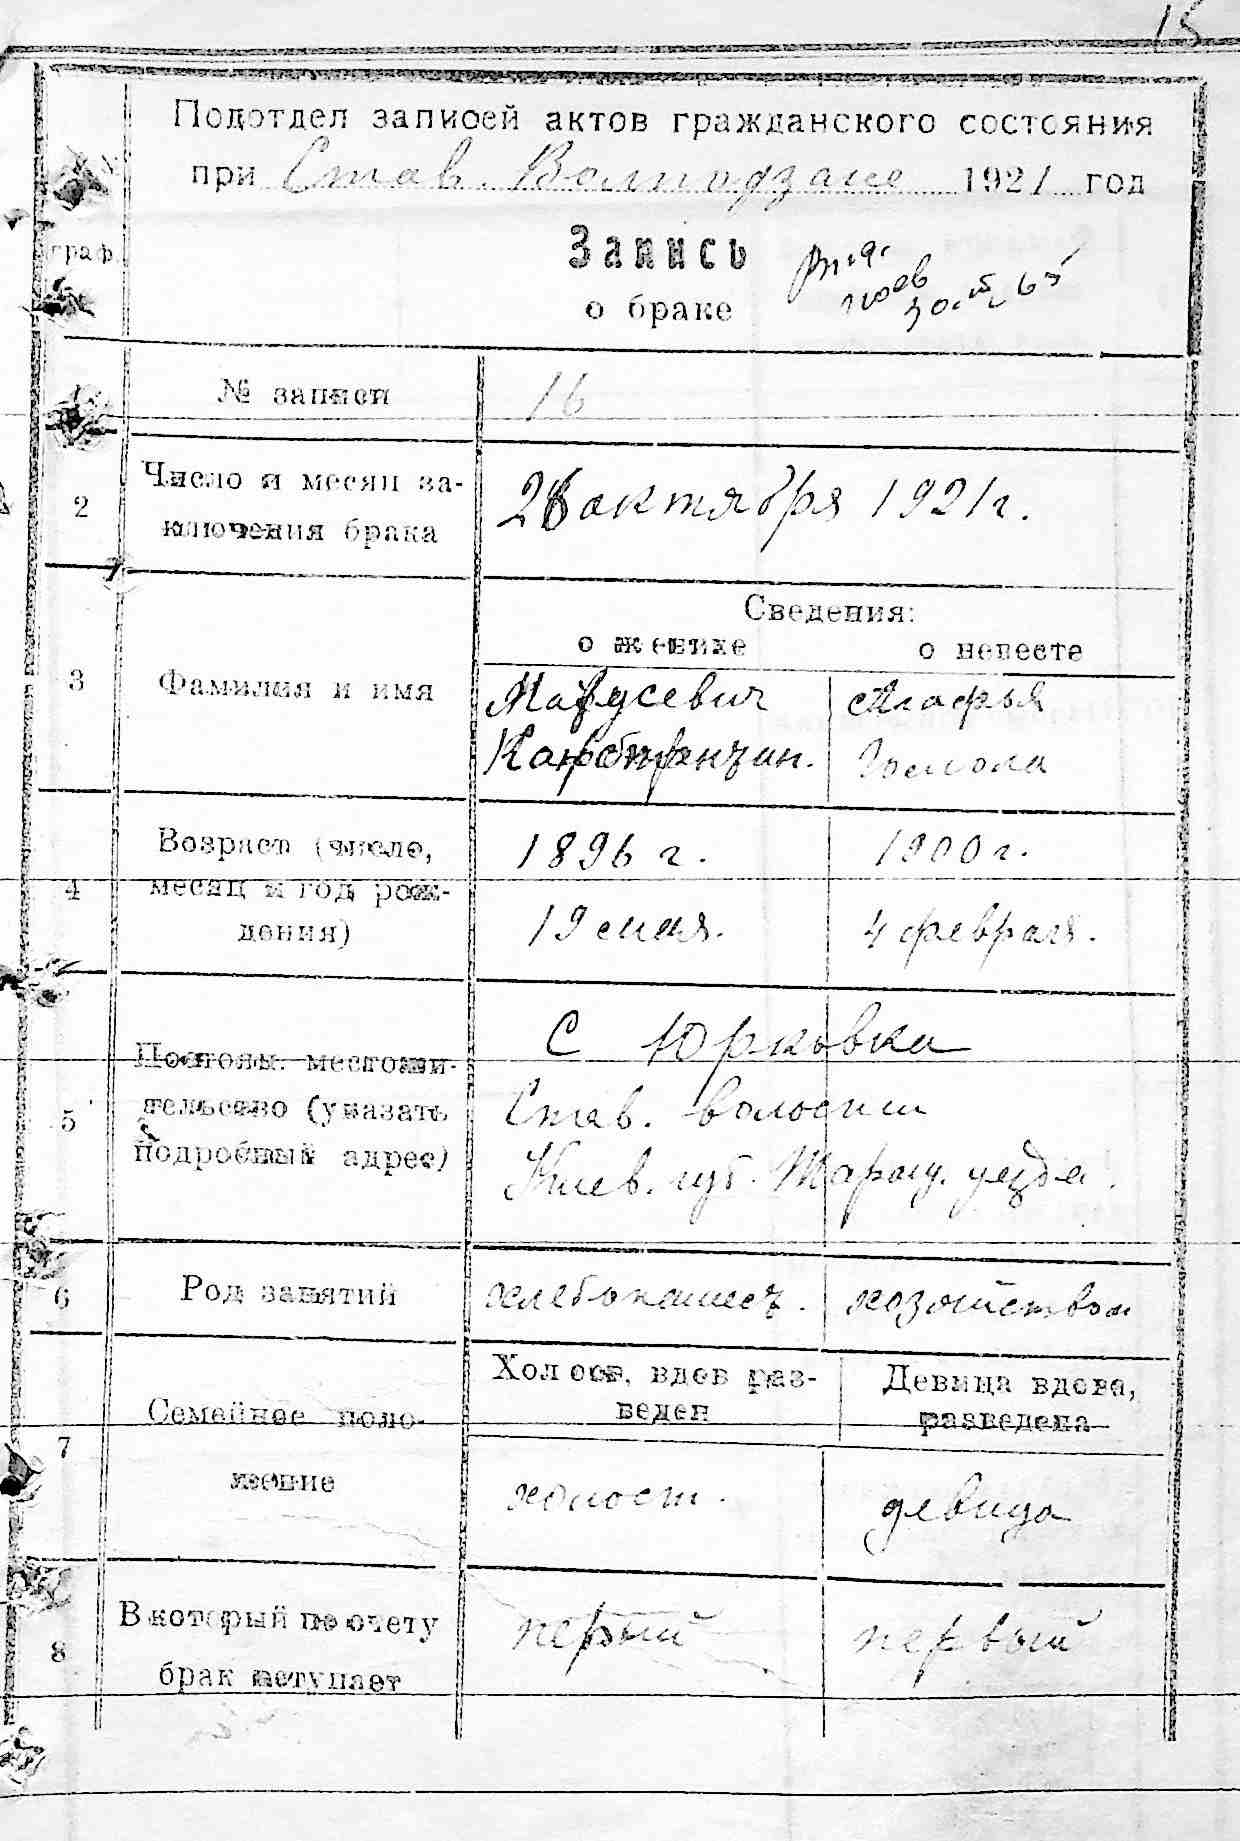 15
Подотдел записей актов гражданского состояния
при Став. Волподзаге 1921 год
граф.
Запись
о браке
№ записи 16
2 Число и месяц за-
ключения брака
26 октября 1921 г.
Сведения:
о женихе о невесте
3 Фамилия и имя
Матусевич Агафья
Константин. Гомола
4 Возраст (число,
месяц и год рож-
дения)
1896 г. 1900 г.
19 мая. 4 февраля.
5 Постоян. местожи-
тельство (указать
подробный адрес)
С Юрковка
Став. волости
Киев. губ. Таращ. уезда.
6 Род занятий хлебопашец. хозяйством
7 Семейное поло-
жение
Холост, вдов раз-
веден
Девица вдова,
разведена
холост. девица
8 В который по счету
брак вступает
первый первый